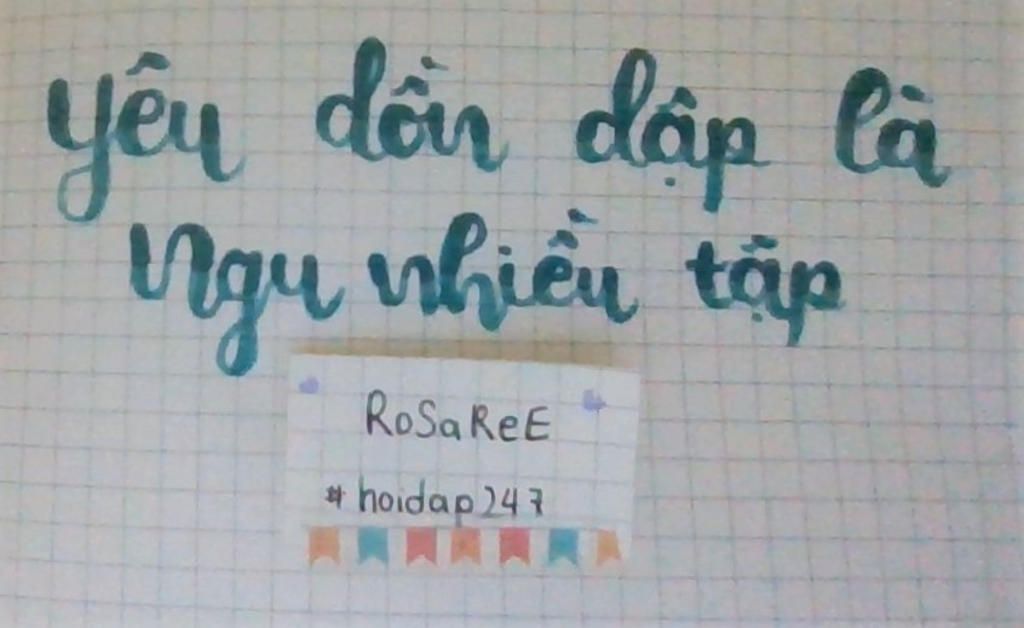 yêu dồn dập là
ngu nhiều tập
RoSaReE
#hoidap247